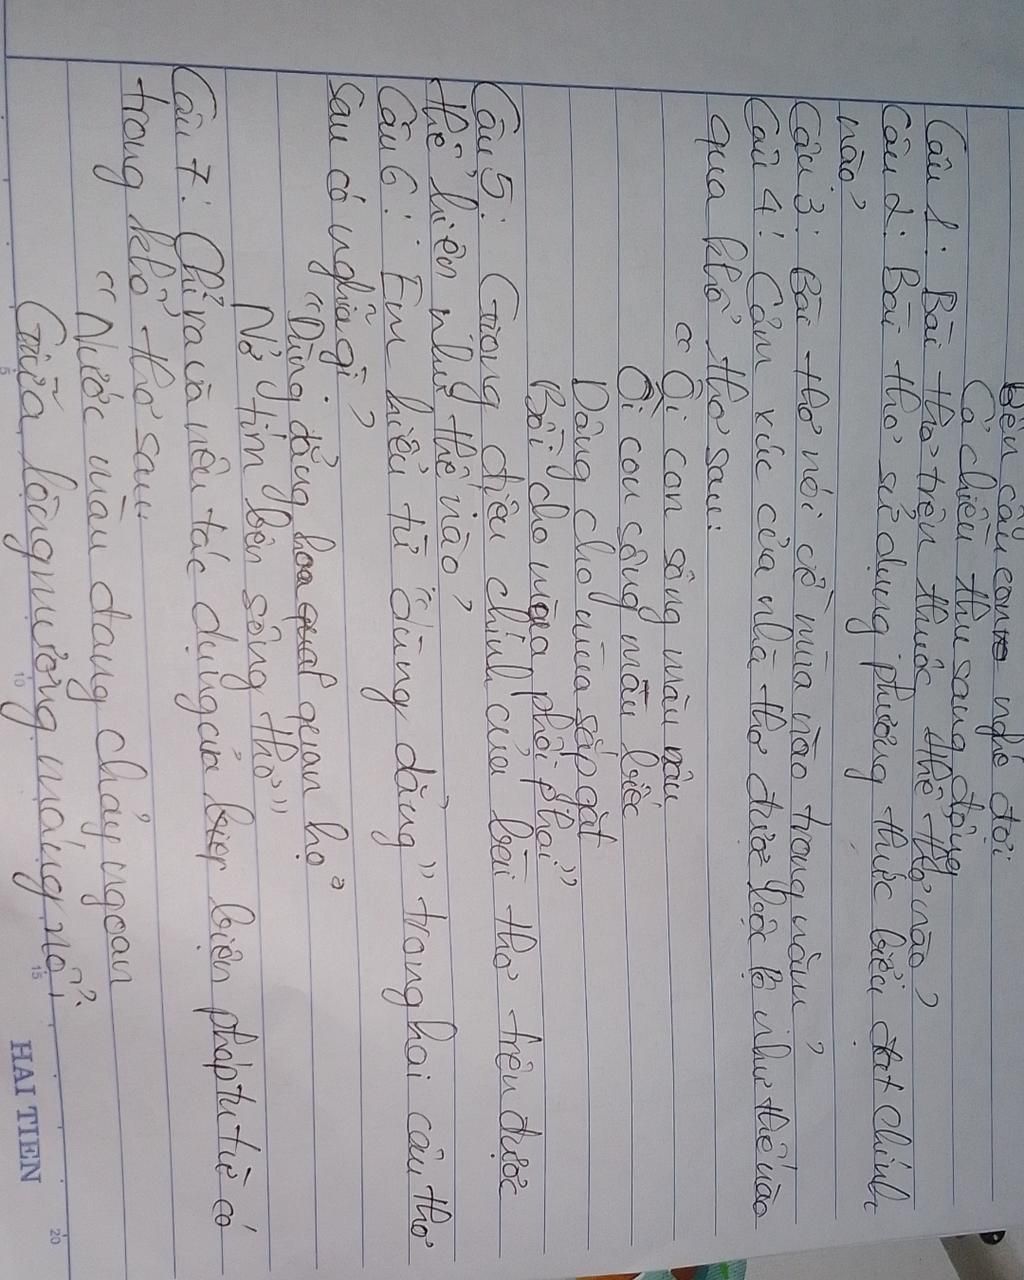 Bên cầu con nghé đợi
Cả chiều thu sang đông
Câu 1: Bài thơ trên thuộc thể thơ nào?
Câu 2: Bài thơ sử dụng phương thức biểu đạt chính
nào?
Câu 3: Bài thơ nói về mùa nào trong năm?
Câu 4: Cảm xúc của nhà thơ được bộc lộ như thế nào
qua khổ thơ sau:
"Ôi con sông màu nâu
Ôi con sông màu biếc
Dâng cho mùa sắp gặt
Bồi cho mùa phôi phai"
Câu 5: Giọng điệu chính của bài thơ trên được
thể hiện như thế nào?
Câu 6: Em hiểu từ "dùng dằng" trong hai câu thơ
sau có nghĩa gì?
"Dùng dằng hoa quan họ
Nở tím bên sông thơ"
Câu 7: Chỉ ra và nêu tác dụng của biện pháp tu từ có
trong khổ thơ sau
"Nước màu đang chảy ngoan
Giữa lòng mương máng nổi
HAI TIEN
5
10
15
20